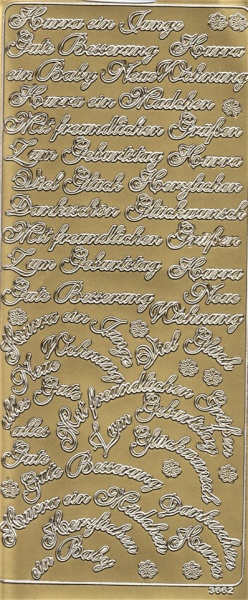 Hurra ein Junge
Gute Besserung Hurra
ein Baby Neue Wohnung
Hurra ein Mädchen
Mit freundlichen Grüßen
Zum Geburtstag Hurra
Viel Glück Herzlichen
Dankeschön Glückwunsch
Mit freundlichen Grüßen
Zum Geburtstag Hurra
Gute Besserung Neue
Hurra ein Junge Wohnung
Viel Glück
Neue Wohnung
Mit freundlichen Grüßen
alles Gute
Zum Geburtstag
alles Gute
Glückwunsch
Gute Besserung
Hurra ein Mädchen
Dankeschön
Herzlichen
Hurra
ein Baby
3662